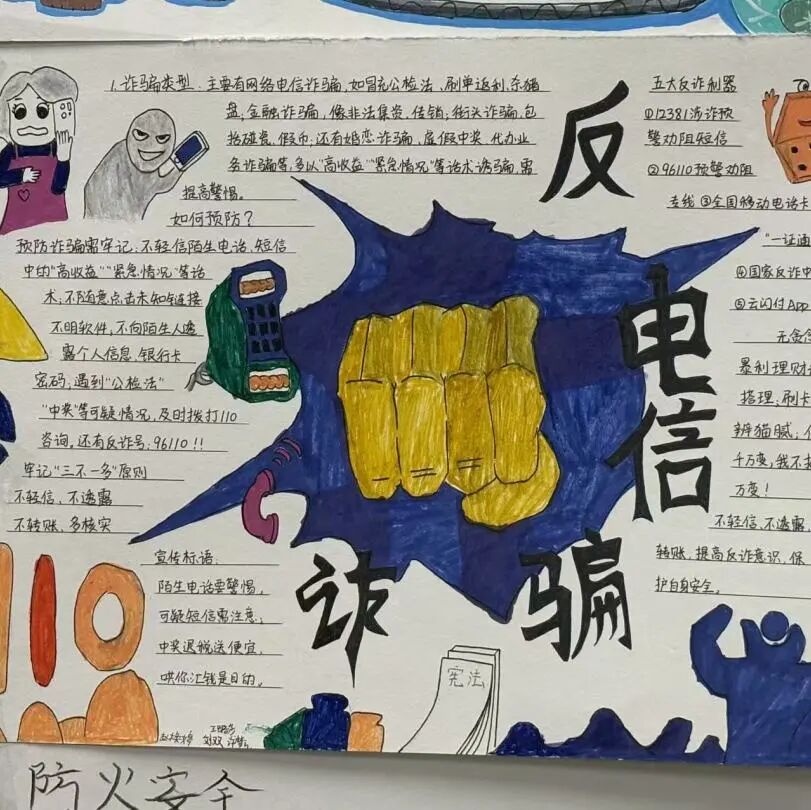 1.诈骗类型:主要有网络电信诈骗,如冒充公检法、刷单返利、杀猪
盘;金融诈骗,像非法集资、传销;街头诈骗,包
括碰瓷、假币;还有婚恋诈骗,虚假中奖、代办业
务诈骗等,多以"高收益""紧急情况"等话术诱骗,需
提高警惕。
如何预防?
预防诈骗需牢记:不轻信陌生电话、短信
中的"高收益""紧急情况"等话
术;不随意点击未知链接
不明软件,不向陌生人透
露个人信息、银行卡
密码;遇到"公检法"
"中奖"等可疑情况,及时拨打110
咨询。还有反诈号:96110!!
牢记"三不一多"原则
不轻信、不透露
不转账、多核实
宣传标语:
陌生电话要警惕,
可疑短信需注意;
中奖退税送便宜,
哄你汇钱是目的。
反
电
信
诈
骗
五大反诈利器
①12381涉诈预
警劝阻短信
②96110预警劝阻
专线③全国移动电话卡
"一证通
④国家反诈中
⑤云闪付App
无贪念
暴利理财
搭理;刷卡
辨猫腻;
千万变,我不
万变!
不轻信、不透露、
转账,提高反诈意识,保
护自身安全。
110
宪法
防火安全